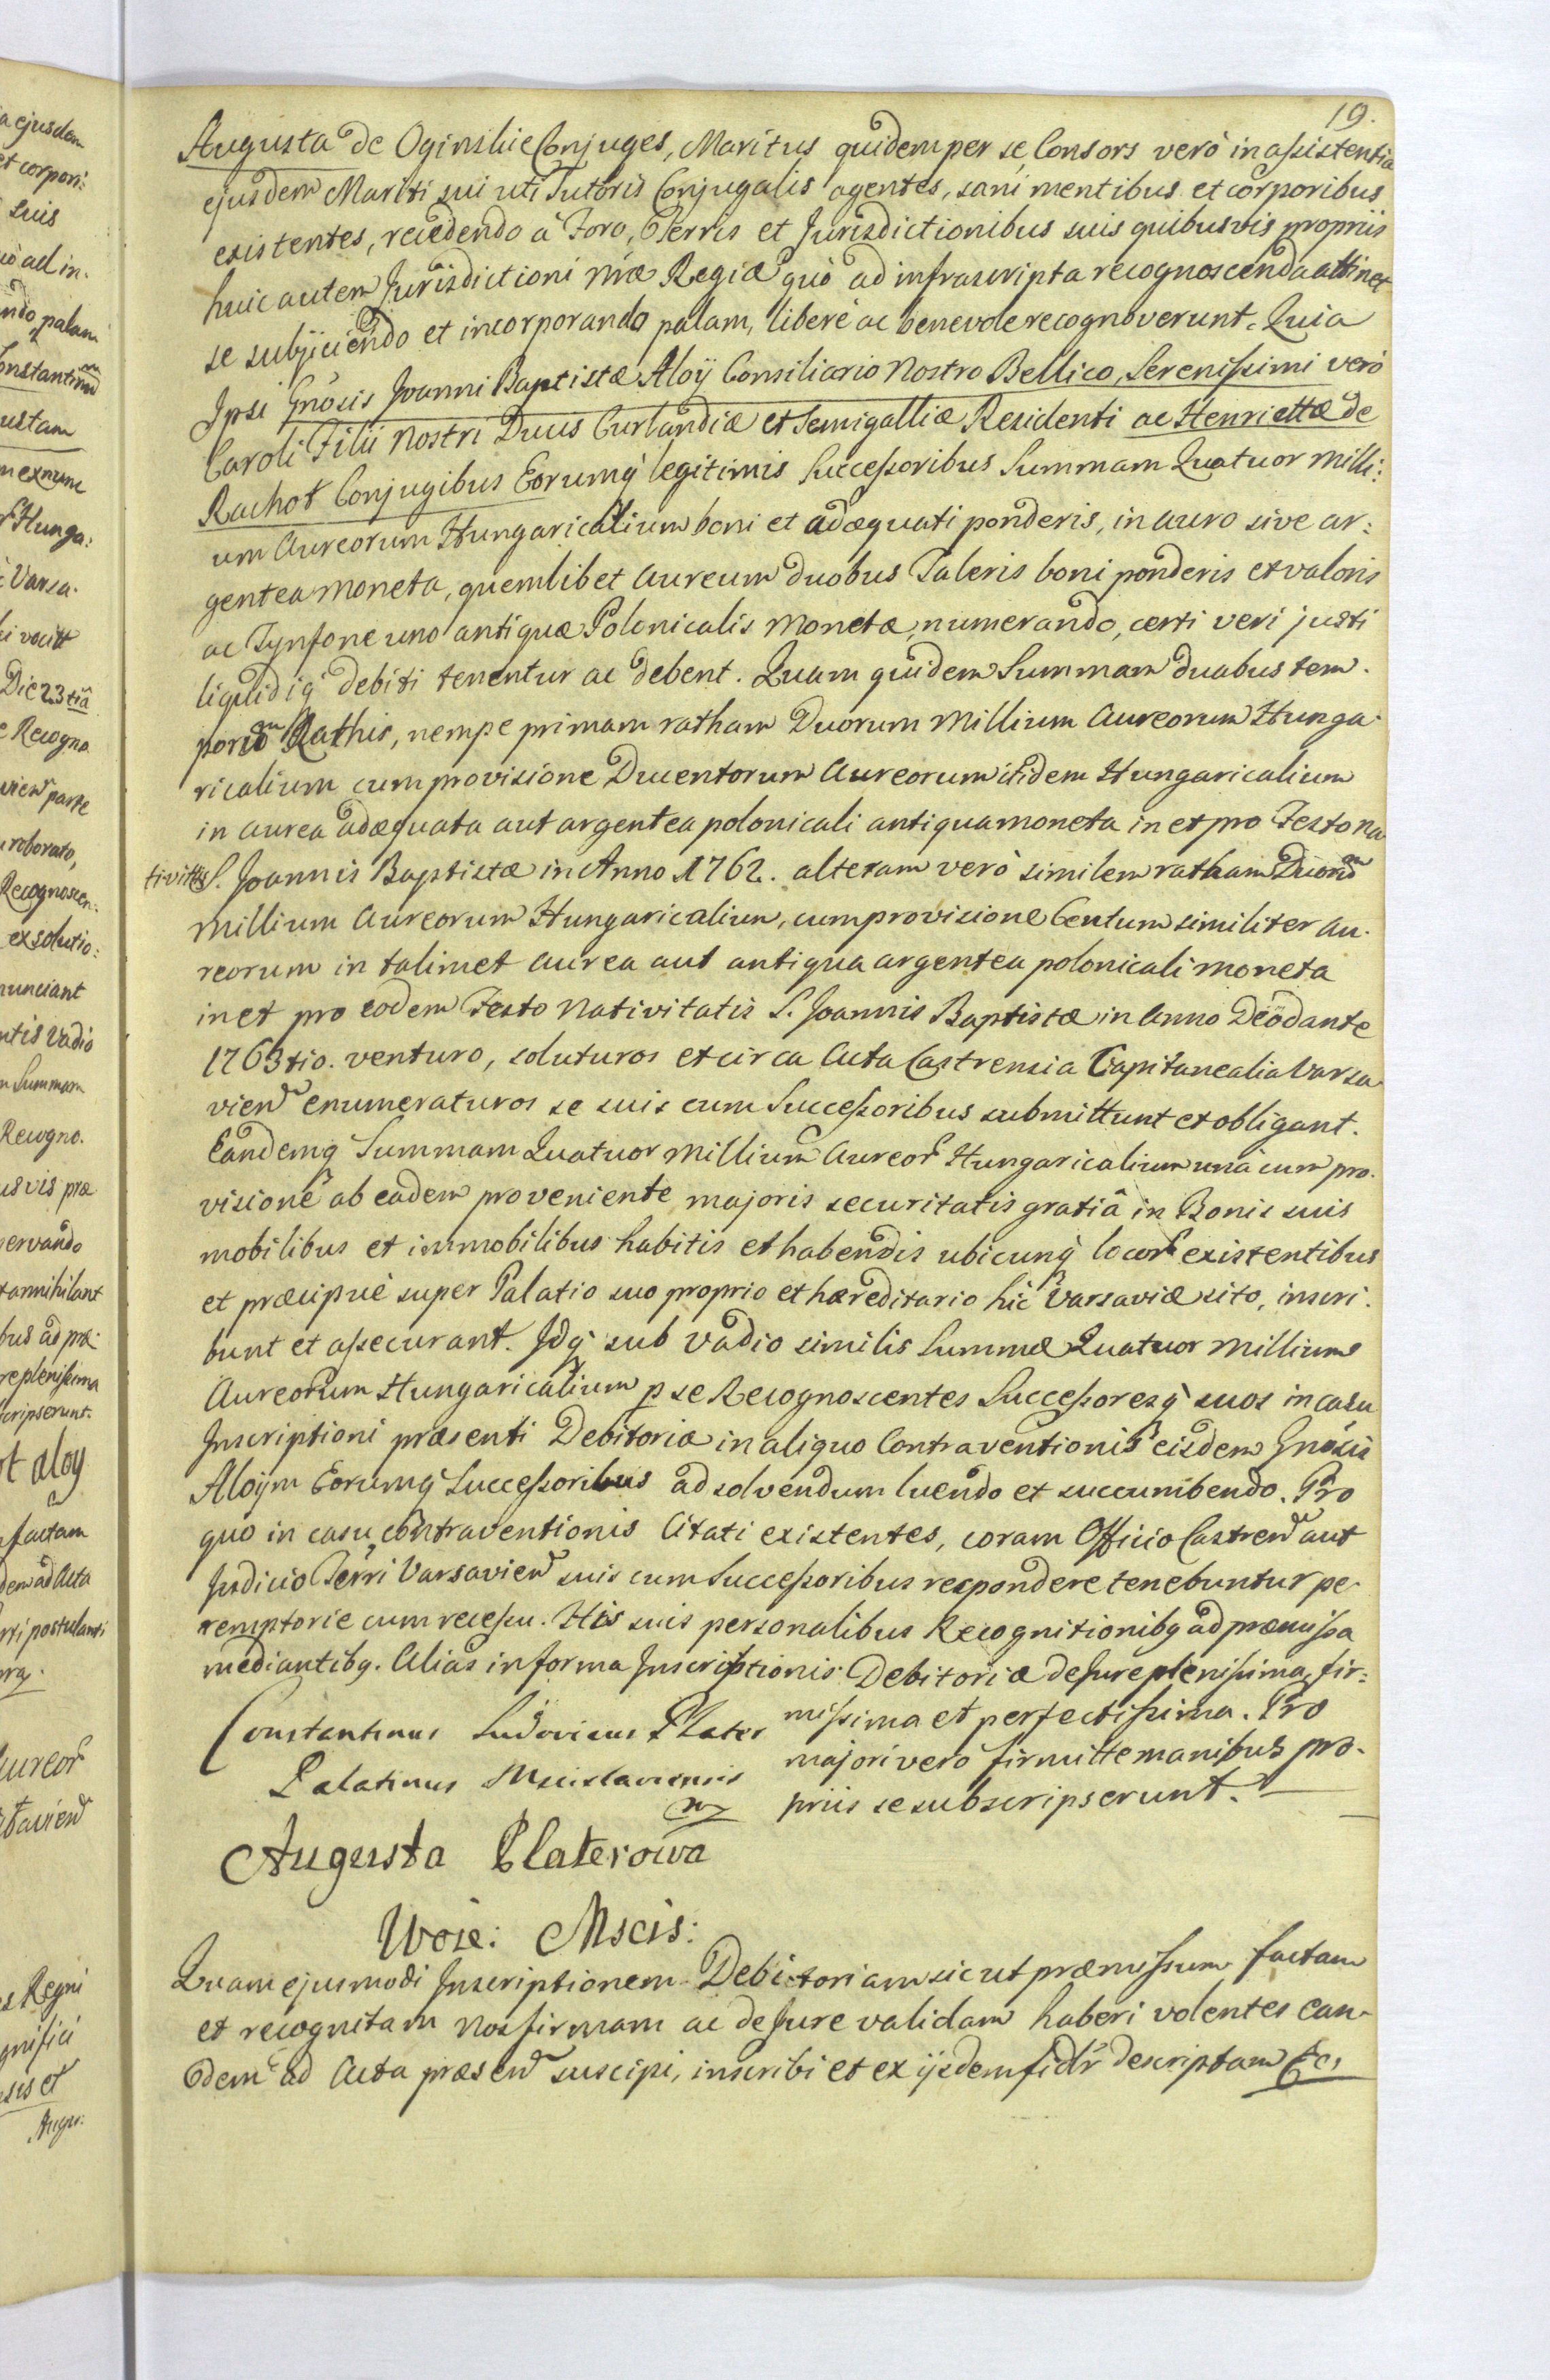 19.
Augusta de Oginskie Conjuges, Maritus quidem per se, Consors verò in assistentia
ejusdem Mariti sui uti Tutoris Conjugalis agentes, sani mentibus et corporibus
existentes, recedendo à Foro, Terris et Jurisdictionibus suis quibusvis propriis
huic autem Jurisdictioni nræ Regiæ quò ad infrascripta recognoscenda attinet
se subjiciendo et incorporando palam, liberè ac benevole recognoverunt. Quia
Ipsi Gnosis Joanni Baptistæ Aloÿ Consiliario Nostro Bellico, Serenissimi verò
Caroli Filii Nostri Ducis Curlandiæ et Semigalliæ Residenti ac Henriettæ de
Rachot Conjugibus Eorumq́ legitimis Successoribus Summam Quatuor Milli:
um Aureorum Hungaricalium boni et adæquati ponderis, in auro sive ar:
gentea moneta, quemlibet Aureum duobus Taleris boni ponderis et valoris
ac Tynfone uno antiquæ Polonicalis Monetæ, numerando, certi veri justi
liquidiq́ debiti tenentur ac debent. Quam quidem Summam duabus tem.
porum Rathis, nempe primam ratham Duorum Millium Aureorum Hunga.
ricalium cum provisione Ducentorum Aureorum itidem Hungaricalium
in aurea adæquata aut argentea polonicali antiqua moneta in et pro Festo Na
tivittis S. Joannis Baptistæ in Anno 1762. alteram verò similem ratham Duorum
Millium Aureorum Hungaricalium, cum provisione Centum similiter Au.
reorum in talimet aurea aut antiqua argentea polonicali moneta
in et pro eodem Festo Nativitatis S. Joannis Baptistæ in Anno Deo dante
1763tio. venturo, soluturos et circa Acta Castrensia Capitanealia Varsa
vien enumeraturos se suis cum Successoribus submittunt et obligant.
Eandemq́ Summam Quatuor Millium Aureor Hungaricalium unà cum pro.
visione ab eadem proveniente majoris securitatis gratiâ in Bonis suis
mobilibus et immobilibus habitis et habendis ubicunq́ locor existentibus
et præcipuè super Palatio suo proprio et hæreditario hic Varsaviæ sito, inscri.
bunt et assecurant. Idq́ sub vadio similis Summæ Quatuor Millium
Aureorum Hungaricalium p se Recognoscentes Successoresq́ suos in casu
Inscriptioni præsenti Debitoriæ in aliquo Contraventionis eisdem Gnosis
Aloÿm Eorumq́ Successoribus ad solvendum luendo et succumbendo. Pro
quo in casu contraventionis Citati existentes, coram Officio Castren aut
Judicio Terri Varsavien suis cum Successoribus respondere tenebuntur pe.
remptorie cum recessu. His suis personalibus Recognitionibq ad præmissa
mediantibq. Alias in forma Inscriptionis Debitoriæ de Jure plenissima, fir=
missima et perfectissima. Pro
majori verò firmitte manibus pro.
priis se subscripserunt.
Constantinus Ludovicus Plater
Palatinus Mscislaviensis
mp
Augusta Platerowa
Woie: Mscis:
Quam ejusmodi Inscriptionem Debitoriam sicut præmissum factam
et recognitam Nos firmam ac de Jure validam haberi volentes ean.
dem ad Acta præsen suscipi, inscribi et ex ijsdem fidlr descriptam &c,